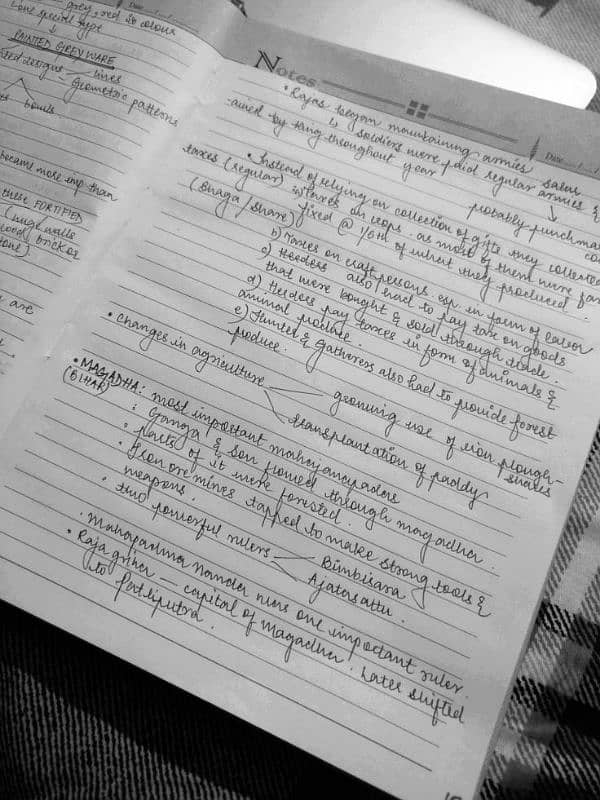 grey, red in colour
(one special type
↓
PAINTED GREY WARE
designs — lines
Geometric patterns
bowls
became more imp than
these FORTIFIED
(huge walls
wood, brick or
stone).
are
Notes
Date
• Rajas began maintaining armies
↳ soldiers were paid regular salaries &
maintained by king throughout year
probably punchmarked
• Instead of relying on collection of gifts they collected
taxes (regular) a) Taxes on crops. as most of them were
(Bhaga/share) fixed @ 1/6th of what they produced.
b) Taxes on craftpersons esp in form of labor
c) Herders also had to pay tax on goods
that were bought & sold through trade.
d) Herders pay taxes in form of animals &
animal produce.
e) Hunters & Gatherers also had to provide forest
produce.
• changes in agriculture — growing use of iron plough-
shares
transplantation of paddy
• MAGADHA: most important mahajanapadas
(BIHAR) : Ganga & Son flowed through magadha.
• Parts of it were forested.
• Iron ore mines tapped to make strong tools &
weapons.
• two powerful rulers — Bimbisara
Ajatasattu.
• Mahapadma Nanda was one important ruler.
• Rajagriha — capital of Magadha. Later shifted
to Patliputra.